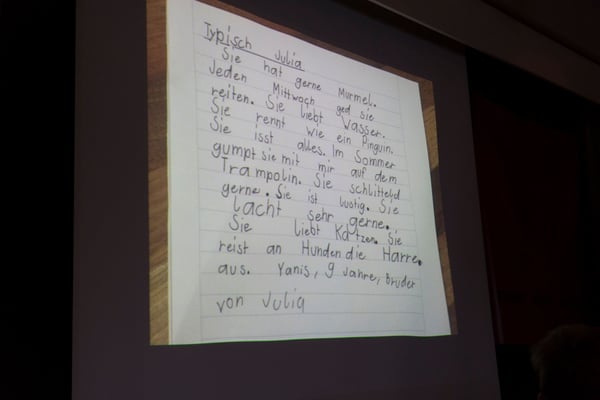 Typisch Julia
Sie hat gerne Murmel.
Jeden Mittwoch ged sie
reiten. Sie liebt Wasser.
Sie rennt wie ein Pinguin.
Sie isst alles. Im Sommer
gumpt sie mit mir auf dem
Trampolin. Sie schlitteld
gerne. Sie ist lustig. Sie
lacht sehr gerne.
Sie liebt Katzen. Sie
reist an Hunden die Harre
aus. Yanis, 9 Jahre, Bruder
von Julia